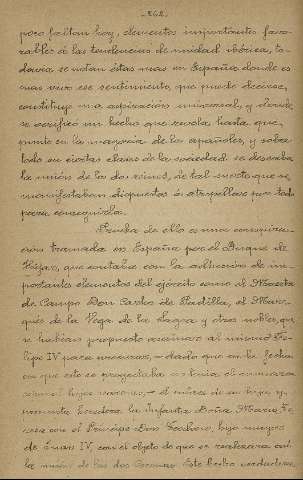 -262-
poco faltan hoy, elementos importantes favo-
rables á las tendencias de unidad ibérica, to-
davia se notan éstas mas en España donde es
mas vivo ese sentimiento, que puede decirse,
constituye una aspiración universal, y donde
se verificó un hecho que revela hasta que
punto en la mayoria de los españoles, y sobre
todo en ciertas clases de la sociedad se deseaba
la unión de los dos reinos, de tal suerte que se
manifestaban dispuestos á atropellar por todo
para conseguirla.
Prueba de ello es una conspira-
ción tramada en España por el Duque de
Hijar, que contaba con la adhesión de im-
portantes elementos del ejército como el Maestre
de Campo Don Carlos de Padilla, el Mar-
qués de la Vega de la Sagra y otros nobles, que
se habian propuesto asesinar al mismo Fe-
lipe IV para - dado que en la fecha
en que esto se proyectaba no tenia el monarca
hijos varones, - el enlace de su hija y
heredera la Infanta Doña Maria Te-
resa con el Principe Don Teodosio, hijo mayor
de Juan IV, con el objeto de que se realizara así
la unión de las dos Coronas. Este hecho